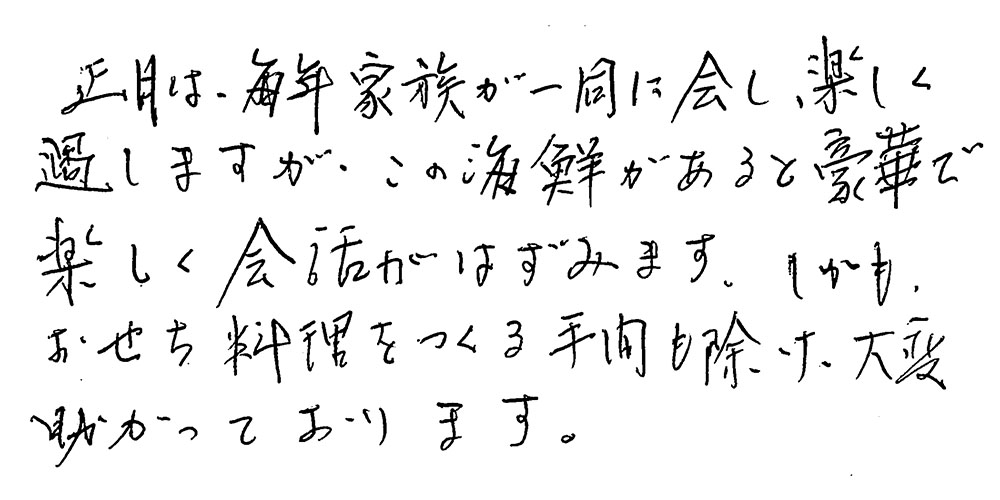 正月は、毎年家族が一同に会し、楽しく
過しますが、この海鮮があると豪華で
楽しく会話がはずみます。しかも、
おせち料理をつくる手間も除け、大変
助かっております。